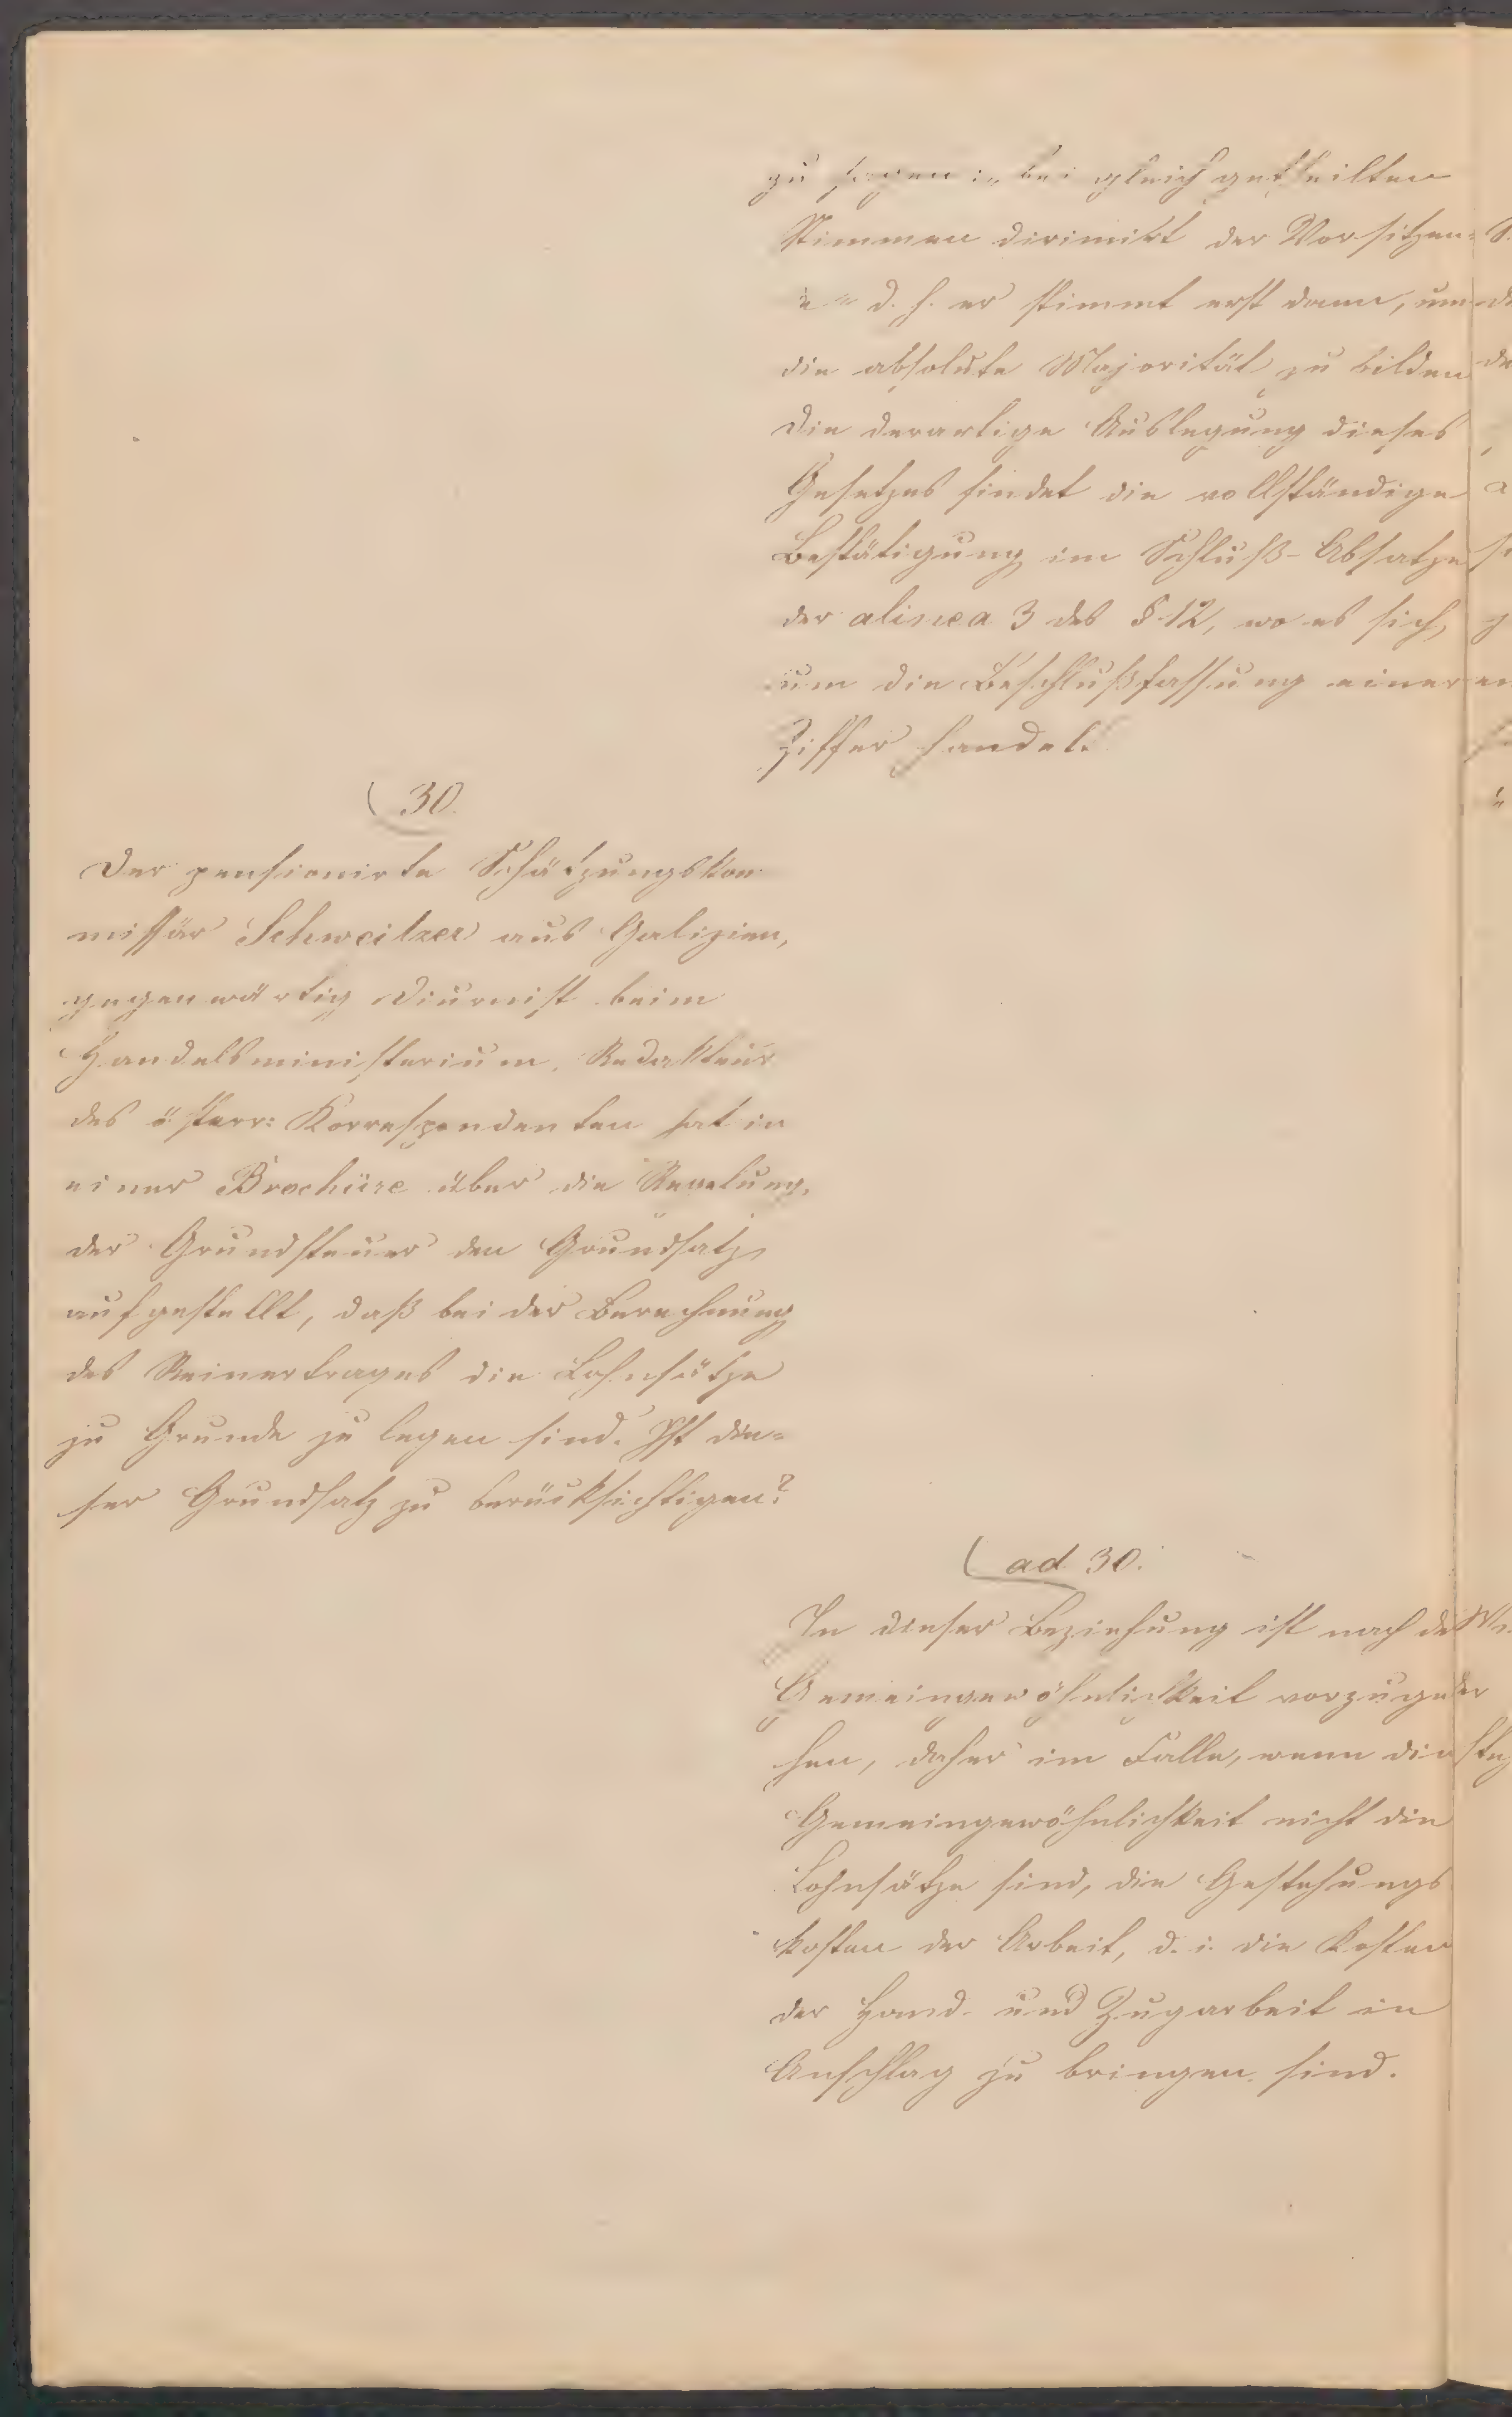 zu sagen: „bei gleich getheilten
Stimmen dirimirt der Vorsitzen-
de" d. h. er stimmt erst dann, um
die absolute Majorität zu bilden
Die derartige Auslegung dieses
Gesetzes findet die vollständige
Bestätigung im Schluß-Absatze
der alinea 3 des § 12, wo es sich
um die Beschlußfassung einer
Ziffer handelt.
30.
Der pensionirte Schätzungskom
missär Schweitzer aus Galizien,
gegenwärtig Diurnist beim
Handelsministerium, Redakteur
des österr: Korrespondenten hat in
einer Brochüre über die Regelung
der Grundsteuer den Grundsatz
aufgestellt, daß bei der Berechnung
des Reinertrages die Lohnsätze
zu Grunde zu legen sind. Ist die-
ser Grundsatz zu berücksichtigen?
ad 30.
In dieser Beziehung ist nach de
Gemeingewöhnlichkeit vorzuge
hen, daher im Falle, wenn die
Gemeingewöhnlichkeit nicht die
Lohnsätze sind, die Gestehungs
kosten der Arbeit, d. i. die Kosten
der Hand- und Zugarbeit in
Anschlag zu bringen sind.